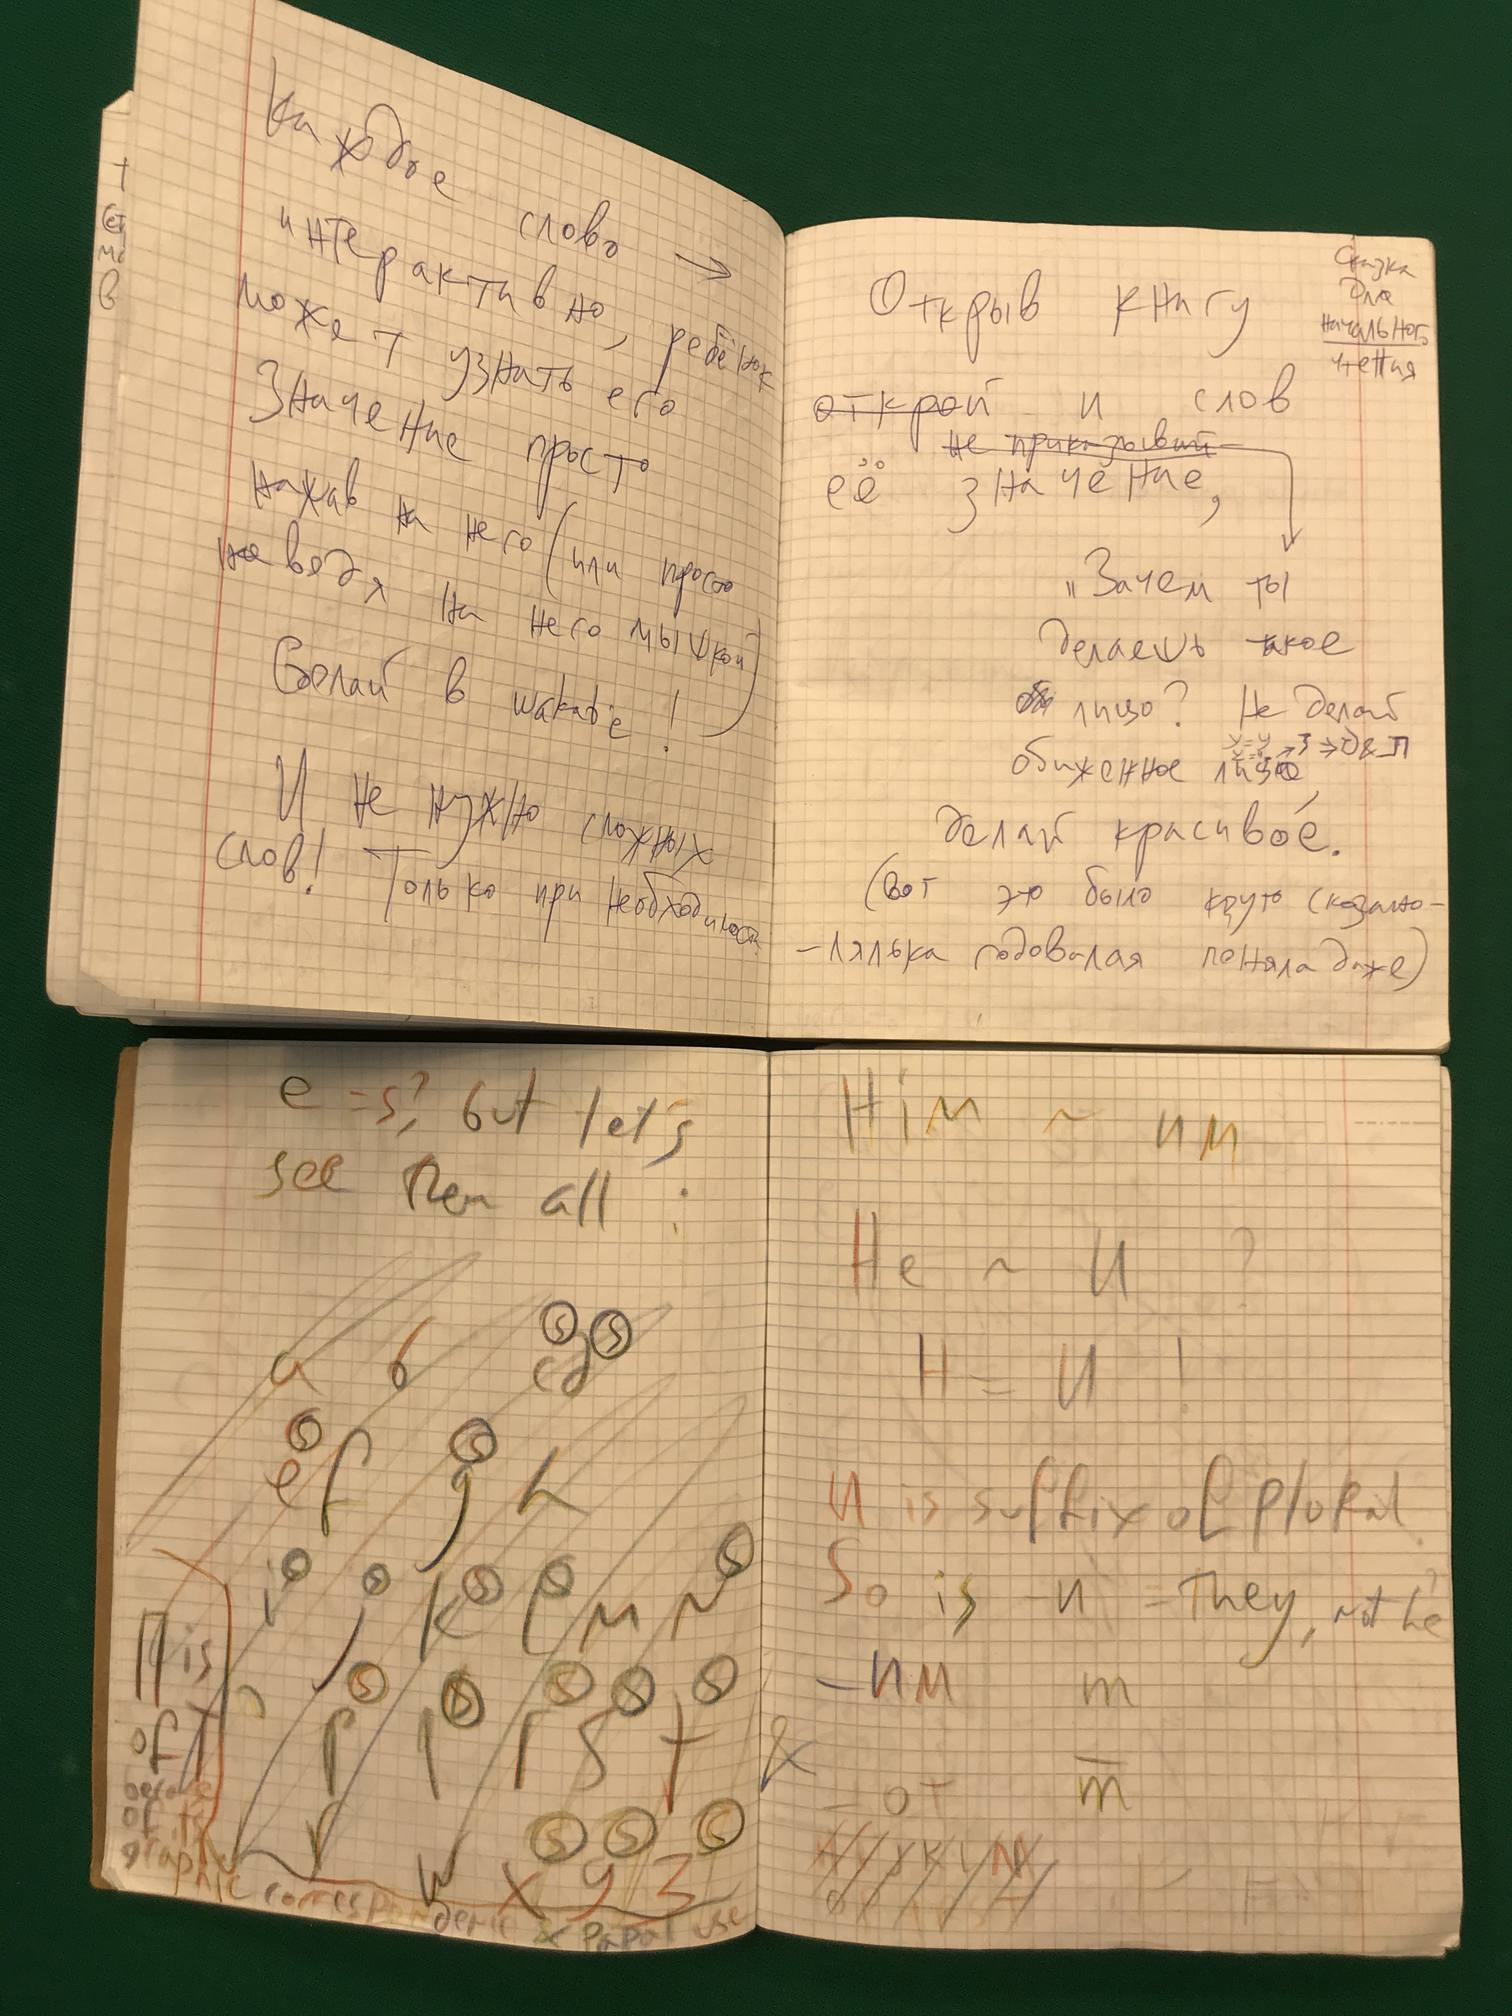 Каждое слово →
интерактивно, ребёнок
может узнать его
значение просто
нажав на него (или просто
наведя на него мышкой)
Сделай в wakabe!
И не нужно сложных
слов! Только при необходимости
Сказка
для
начального
чтения
Открыв книгу
открой и слов
не приказывай
её значение,
"Зачем ты
делаешь такое
лицо? Не делай
обиженное лицо,
делай красивое.
(Вот это было круто сказано-
-лялька годовалая поняла даже)
e = s?, but let's
see them all :
a b c d
s s
e f g h
s s
i j k l m n
s s s s s
p q r s t
s s s s s
v w x y z
s s s
П is
of T
because
of its
graphic correspondence & papal use
Him ~ им
He ~ И ?
H = И !
и is suffix of plural
So is -и = They, not he
-им m
&
-от m̅